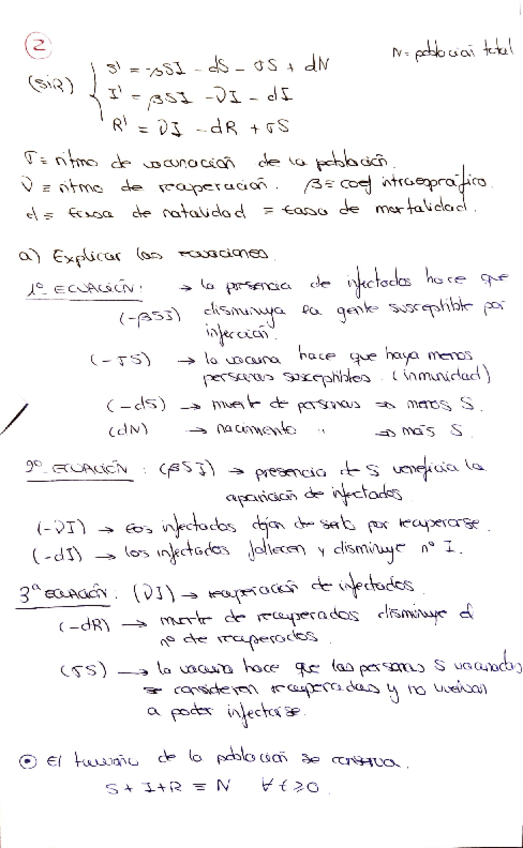 2
N = población total
(SIR) { S' = -βSI - dS - σS + dN
I' = βSI - νI - dI
R' = νI - dR + σS
σ ≡ ritmo de vacunación de la población.
ν ≡ ritmo de recuperación. β ≡ coef intraespráfico.
d ≡ tasa de natalidad = tasa de mortalidad.
a) Explicar las ecuaciones.
1º ECUACIÓN: → la presencia de infectados hace que
(-βSI) disminuya la gente susceptible por
infección.
(-σS) → la vacuna hace que haya menos
personas susceptibles. (inmunidad)
(-dS) → muerte de personas ⇒ menos S.
(dN) → nacimiento " ⇒ más S.
2º ECUACIÓN: (βSI) → presencia de S veneficia la
aparición de infectados
(-νI) → Los infectados dejan de serlo por recuperarse.
(-dI) → los infectados fallecen y disminuye nº I.
3ª ECUACIÓN: (νI) → recuperación de infectados.
(-dR) → muerte de recuperados disminuye el
nº de recuperados.
(σS) → la vacuna hace que las personas S vacunadas
se consideren recuperadas y no vuelvan
a poder infectarse.
⊙ El tamaño de la población se conserva.
S + I + R ≡ N ∀ t ≥ 0.